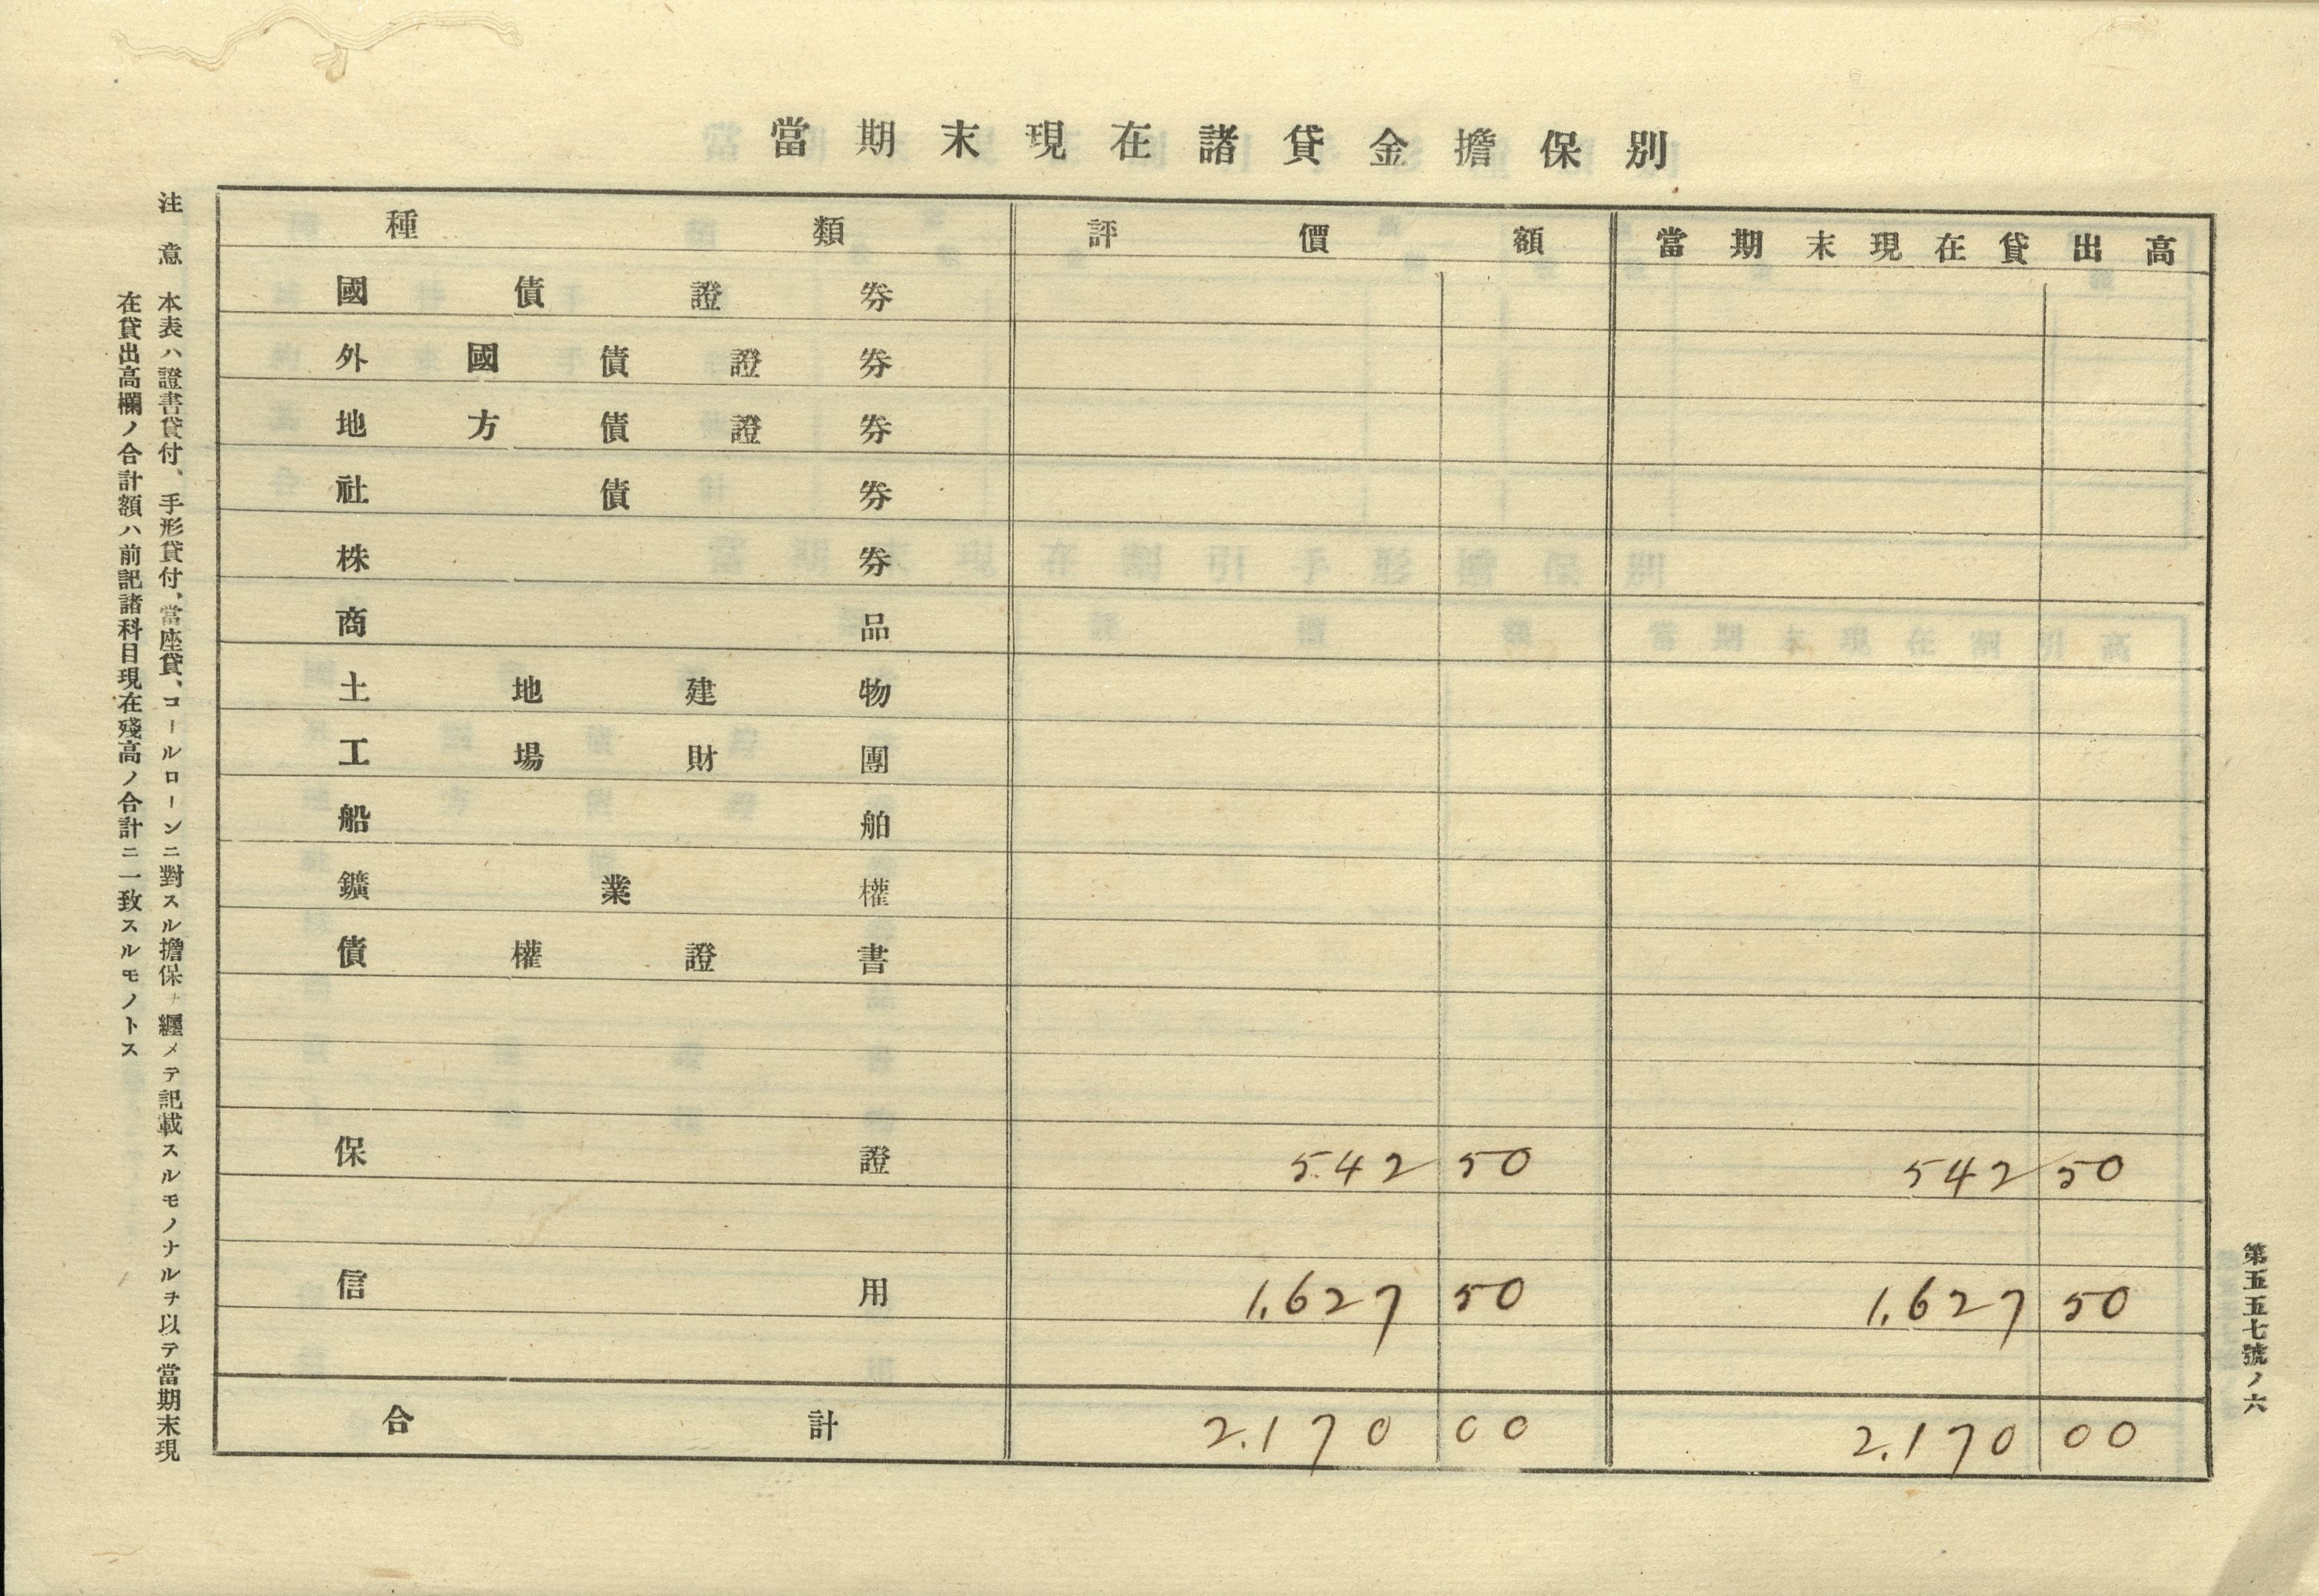 當期末現在諸貸金擔保別
種類 評價額 當期末現在貸出高
國債證券
外國債證券
地方債證券
社債券
株券
商品
土地建物
工場財團
船舶
鑛業權
債權證書
保證 542 50 542 50
信用 1,627 50 1,627 50
合計 2,170 00 2,170 00
注意 本表ハ證書貸付、手形貸付、當座貸、コールローンニ對スル擔保ヲ纒メテ記載スルモノナルヲ以テ當期末現
在貸出高欄ノ合計額ハ前記諸科目現在殘高ノ合計ニ一致スルモノトス
第五五七號ノ六